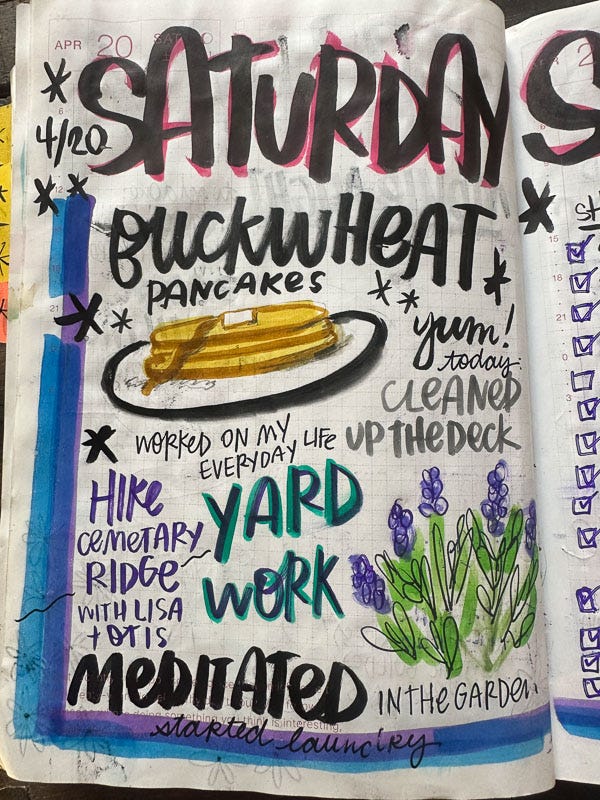 APR 20 SAT
SATURDAY
4/20
BUCKWHEAT
PANCAKES
yum!
today:
CLEANED
UP THE DECK
WORKED ON MY
EVERYDAY LIFE
HIKE
CEMETARY
RIDGE
WITH LISA
+ OTIS
YARD
WORK
MEDITATED
IN THE GARDEN.
started laundry